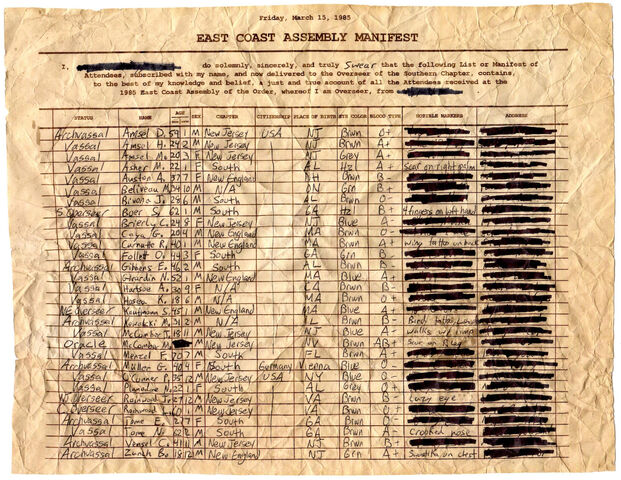 Friday, March 15, 1985
EAST COAST ASSEMBLY MANIFEST
I, do solemnly, sincerely, and truly swear that the following List or Manifest of
Attendees, subscribed with my name, and now delivered to the Overseer of the Southern Chapter, contains,
to the best of my knowledge and belief, a just and true account of all the Attendees received at the
1985 East Coast Assembly of the Order, whereof I am Overseer, from
STATUS NAME AGE SEX CHAPTER CITIZENSHIP PLACE OF BIRTH EYE COLOR BLOOD-TYPE NOTIBLE MARKERS ADDRESS
Archvassal Amsel D. 59 1 M New Jersey USA NJ Brwn O+
Vassal Amsel H. 24 2 M New Jersey NJ Brwn A-
Vassal Amsel M. 20 3 F New Jersey NJ Grey A+
Vassal Asher M. 22 1 F South AL Hz A+ Scar on right palm
Vassal Auston A. 37 7 F New England NH Brwn B-
Vassal Beliveau M. 34 10 M N/A ON Grn B+
Vassal Bivona J. 28 6 M South AL Brwn O-
S. Overseer Boer S. 62 1 M South GA Hz B+ 4 fingers on left hand
Vassal Brierly C. 24 8 F New Jersey NJ Blue A-
Vassal Caya G. 20 4 M New England MA Brwn O-
Vassal Carnate R. 40 1 M New England MA Brwn A+
Vassal Follett O. 44 3 F South GA Grn B-
Archvassal Gibbens E. 46 2 M South AL Brwn B-
Vassal Girardin N. 52 1 M New England MA Blue A+
Vassal Hartsoe A. 30 9 F N/A CA Brwn B-
Vassal Hosea R. 18 6 M N/A MA Brwn O+
NE Overseer Kaufmann S. 45 1 M New England MA Blue A+
Archvassal Kowalski M. 31 2 M N/A VA Brwn B-
Vassal McCumber T. 18 11 M New Jersey NJ Blue A- walks w/ limp
Oracle McCumber M. M New Jersey NV Brwn AB+ Scar on R leg
Vassal Menzel F. 70 7 M South FL Brwn A+
Archvassal Müller G. 40 4 F South Germany Vienna Blue O-
Vassal O'Conner P. 35 12 M New Jersey USA NY Blue O-
Vassal 22 1 F South AL Grey O+
NJ Overseer Rainwood Jr. 27 12 M New Jersey VA Brwn B- Lazy eye
C. Overseer Rainwood L. 60 1 M New Jersey VA Brwn O+
Archvassal Tome E. 27 7 F South GA Brwn O-
Vassal Tome N. 62 2 M South GA Brwn A- Crooked nose
Archvassal Vensel C. 41 11 M New Jersey NJ Brwn B+
Archvassal B. 18 12 M New England NJ Grn B+ Swastika on chest